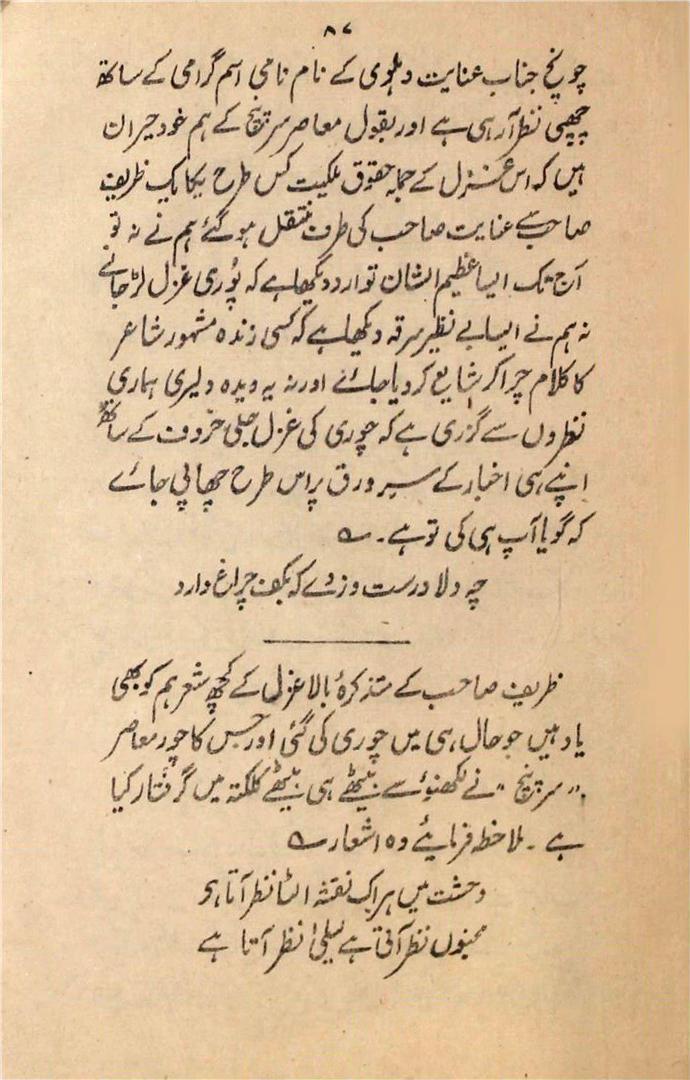 ۸۷
چونچ جناب عنایت دہلوی کے نام نامی اسم گرامی کے ساتھ
چھپی نظر آرہی ہے اور بقول معاصر سرپنچ کے ہم خود حیران
ہیں کہ اس غزل کے جملہ حقوق ملکیت کس طرح یکایک ظریف
صاحب سے عنایت صاحب کی طرف منتقل ہوگئے ہم نے نہ تو
آج تک ایسا عظیم الشان توارد دیکھا ہے کہ پُوری غزل لڑجائے
نہ ہم نے ایسا بے نظیر سرقہ دیکھا ہے کہ کسی زندہ مشہور شاعر
کا کلام چرا کر شایع کردیا جائے اور نہ یہ دیدہ دلیری ہماری
نظروں سے گزری ہے کہ چوری کی غزل جلی حروف کے ساتھ
اپنے ہی اخبار کے سرورق پر اس طرح چھاپی جائے
کہ گویا آپ ہی کی تو ہے۔ ؎
چہ دلاورست دزدے کہ بکف چراغ دارد
ظریف صاحب کے متذکرۂ بالا غزل کے کچھ شعر ہم کو بھی
یاد ہیں جو حال ہی میں چوری کی گئی اور جس کا چور معاصر
"سرپنچ" نے لکھنؤ سے بیٹھے ہی بیٹھے کلکتہ میں گرفتار کیا
ہے۔ ملاحظہ فرمایئے وہ اشعار ؎
وحشت میں ہر اک نقشہ الٹا نظر آتا ہے
مجنوں نظر آتی ہے لیلیٰ نظر آتا ہے